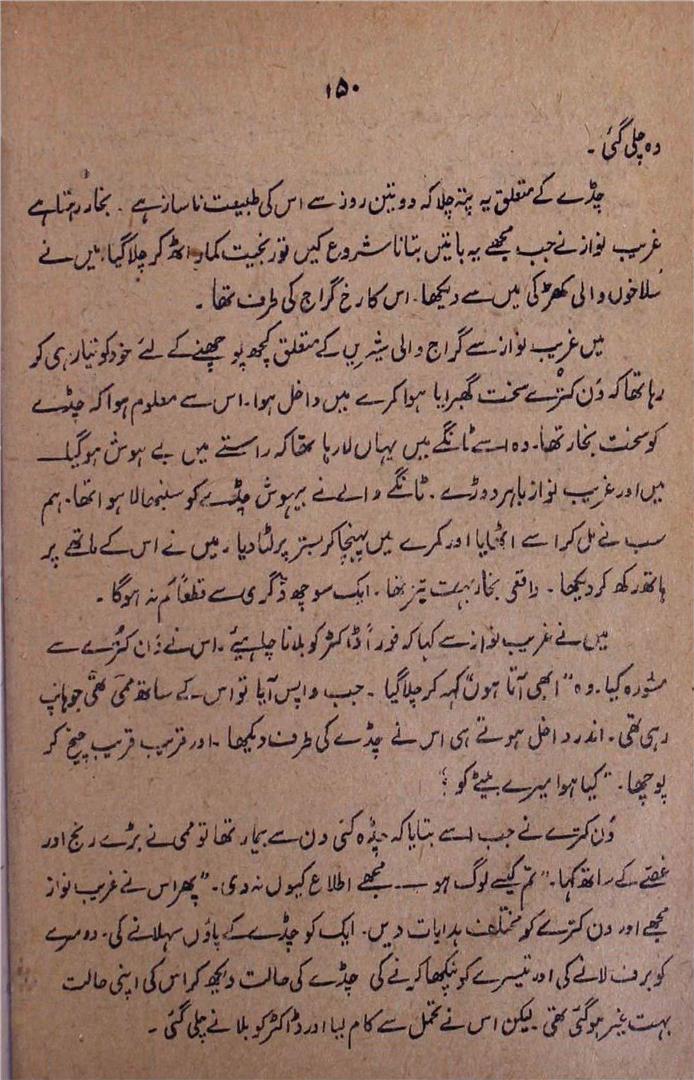 ۱۵۰
وہ چلی گئی۔
چڈے کے متعلق یہ پتہ چلا کہ دو تین روز سے اس کی طبیعت ناساز ہے۔ بخار رہتا ہے
غریب نواز نے جب مجھے یہ باتیں بتانا شروع کیں تو رنجیت کمار اٹھ کر چلا گیا، میں نے
سلاخوں والی کھڑکی میں سے دیکھا۔ اس کا رخ گراج کی طرف تھا۔
میں غریب نواز سے گراج والی شیریں کے متعلق کچھ پوچھنے کے لئے خود کو تیار ہی کر
رہا تھا کہ وَن کترے سخت گھبرایا ہوا کمرے میں داخل ہوا۔ اس سے معلوم ہوا کہ چڈے
کو سخت بخار تھا۔ وہ اسے ٹانگے میں یہاں لا رہا تھا کہ راستے میں بے ہوش ہو گیا۔
میں اور غریب نواز باہر دوڑے۔ ٹانگے والے نے بیہوش چڈے کو سنبھالا ہوا تھا۔ ہم
سب نے مل کر اسے اٹھایا اور کمرے میں پہنچا کر بستر پر لٹا دیا۔ میں نے اس کے ماتھے پر
ہاتھ رکھ کر دیکھا۔ واقعی بخار بہت تیز تھا۔ ایک سو چھ ڈگری سے قطعاً کم نہ ہو گا۔
میں نے غریب نواز سے کہا کہ فوراً ڈاکٹر کو بلانا چاہیئے۔ اس نے وَن کترے سے
مشورہ کیا۔ وہ "ابھی آتا ہوں" کہہ کر چلا گیا۔ جب واپس آیا تو اس کے ساتھ ممی تھی جو ہانپ
رہی تھی۔ اندر داخل ہوتے ہی اس نے چڈے کی طرف دیکھا۔ اور قریب قریب چیخ کر
پوچھا۔ "کیا ہوا میرے بیٹے کو؟
وَن کترے نے جب اسے بتایا کہ چڈہ کئی دن سے بیمار تھا تو ممی نے بڑے رنج اور
غصے کے ساتھ کہا۔ "تم کیسے لوگ ہو — مجھے اطلاع کیوں نہ دی۔" پھر اس نے غریب نواز
مجھے اور ون کترے کو مختلف ہدایات دیں۔ ایک کو چڈے کے پاؤں سہلانے کی۔ دوسرے
کو برف لانے کی اور تیسرے کو پنکھا کرنے کی چڈے کی حالت دیکھ کر اس کی اپنی حالت
بہت غیر ہو گئی تھی۔ لیکن اس نے تحمل سے کام لیا اور ڈاکٹر کو بلانے چلی گئی۔